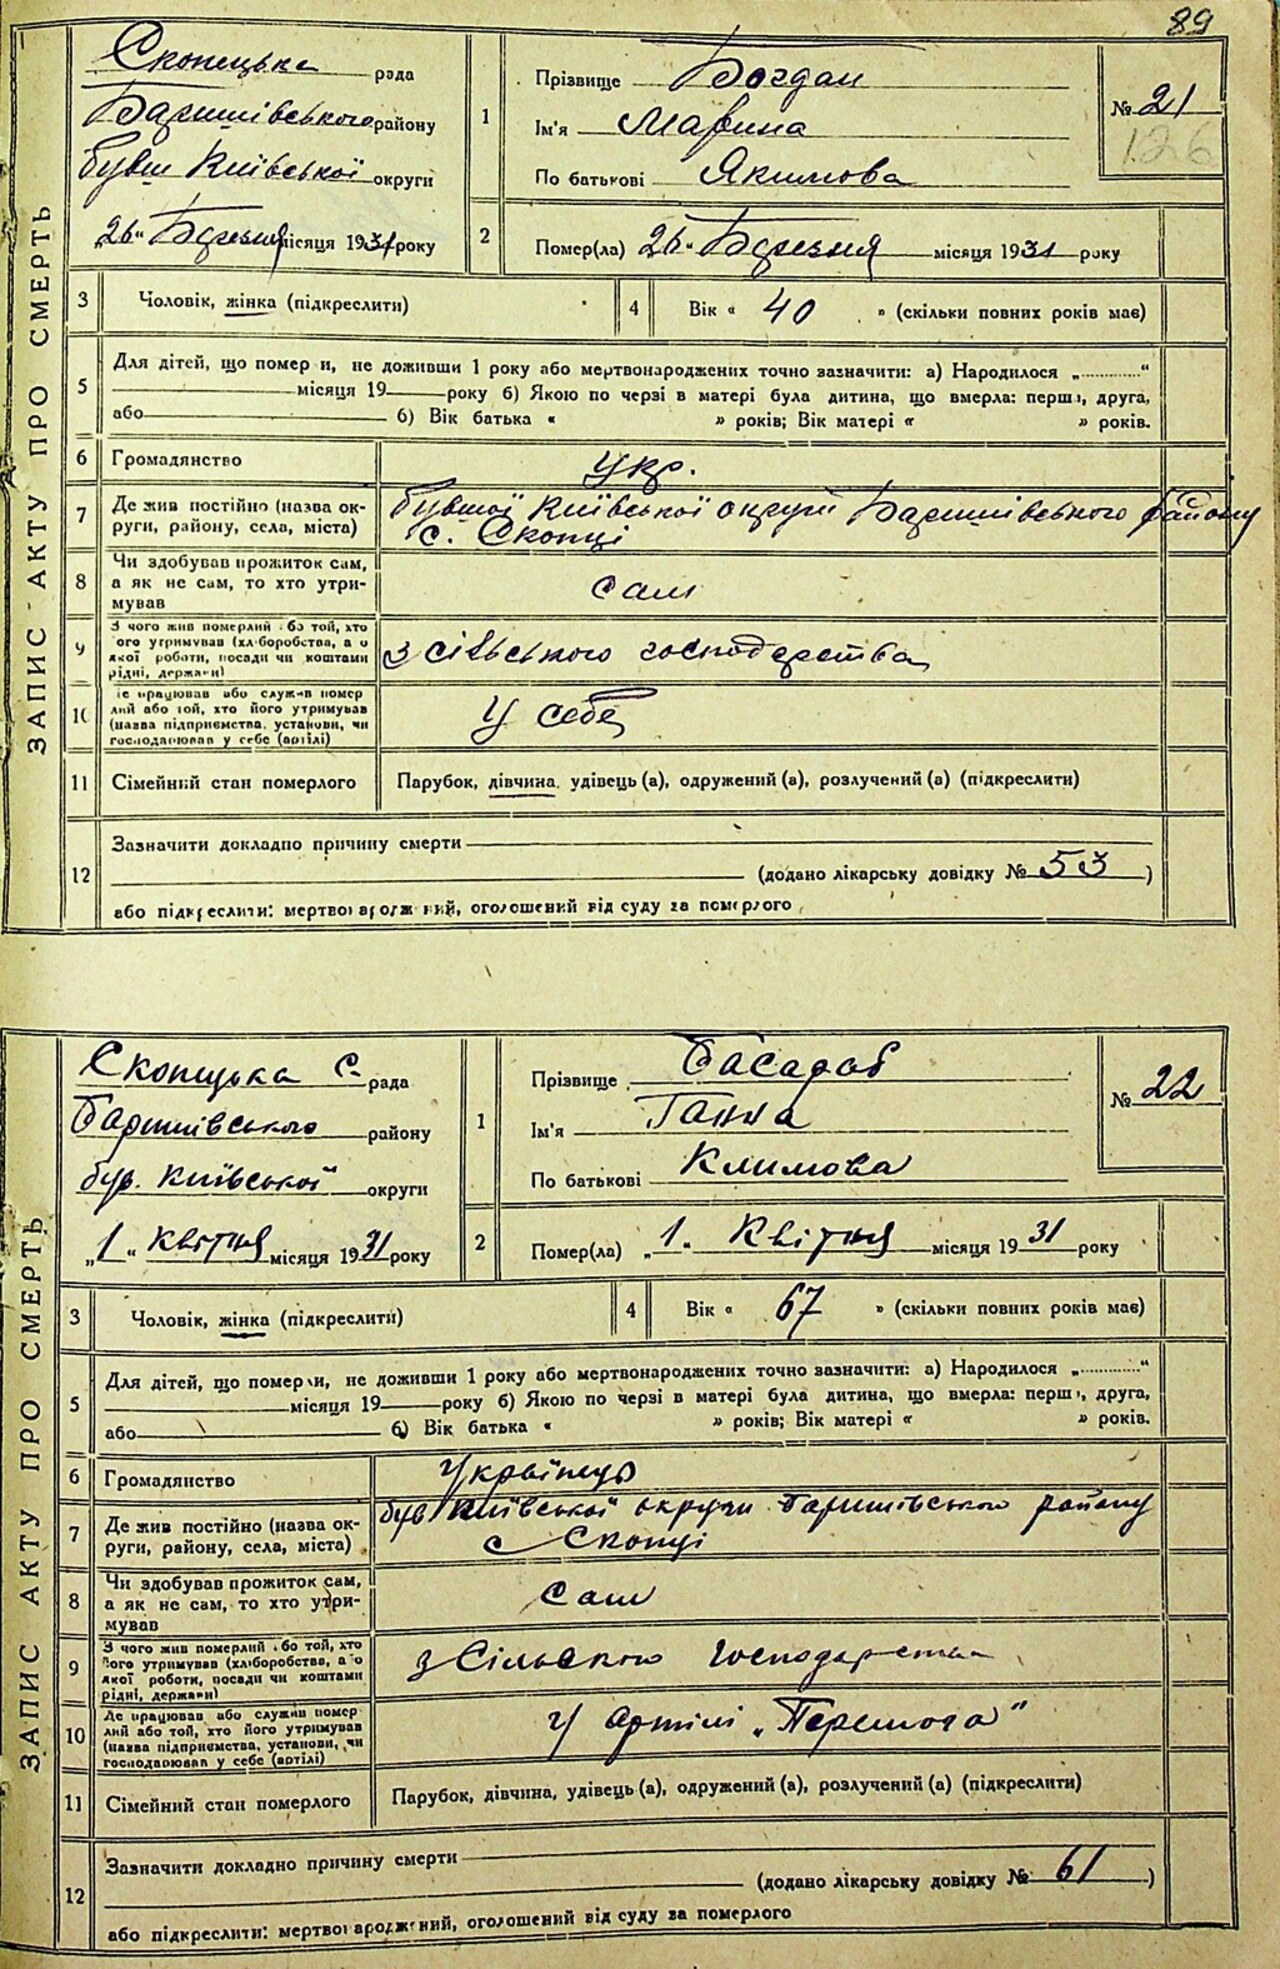 89
ЗАПИС АКТУ ПРО СМЕРТЬ
Скопецька рада
Баришівського району
бувш Київської округи
„26“ Березня місяця 1931 року
1
Прізвище Богдан
Ім'я Марина
По батькові Якимова
№ 21
126
2
Помер(ла) 26 „ Березня місяця 1931 року
3 Чоловік, жінка (підкреслити)
4 Вік « 40 » (скільки повних років має)
5
Для дітей, що помер и, не доживши 1 року або мертвонароджених точно зазначити: а) Народилося „ “
місяця 19 року б) Якою по черзі в матері була дитина, що вмерла: перша, друга,
або 6) Вік батька « » років; Вік матері « » років.
6 Громадянство укр.
7 Де жив постійно (назва ок-
руги, району, села, міста)
бувшої Київської округи Баришівського району
с. Скопці
8
Чи здобував прожиток сам,
а як не сам, то хто утри-
мував
сам
9
З чого жив померлий або той, хто
його утримував (хліборобства, а о
якої роботи, посади чи коштами
рідні, держави)
з сільського господарства
10
Де працював або служив помер
лий або той, хто його утримував
(назва підприємства, установи, чи
господарював у себе (артілі)
У себе
11 Сімейний стан померлого
Парубок, дівчина, удівець (а), одружений (а), розлучений (а) (підкреслити)
12
Зазначити докладно причину смерти
(додано лікарську довідку № 53 )
або підкреслити: мертвонароджений, оголошений від суду за померлого
ЗАПИС АКТУ ПРО СМЕРТЬ
Скопецька с. рада
Баришівського району
був. Київської округи
„1“ квітня місяця 1931 року
1
Прізвище Басараб
Ім'я Ганна
По батькові Климова
№ 22
2
Помер(ла) „1“ Квітня місяця 1931 року
3 Чоловік, жінка (підкреслити)
4 Вік « 67 » (скільки повних років має)
5
Для дітей, що померли, не доживши 1 року або мертвонароджених точно зазначити: а) Народилося „ “
місяця 19 року б) Якою по черзі в матері була дитина, що вмерла: перша, друга,
або 6) Вік батька « » років; Вік матері « » років.
6 Громадянство Українець
7 Де жив постійно (назва ок-
руги, району, села, міста)
був Київської округи Баришівського району
с Скопці
8
Чи здобував прожиток сам,
а як не сам, то хто утри-
мував
сам
9
З чого жив померлий або той, хто
його утримував (хліборобства, а о
якої роботи, посади чи коштами
рідні, держави)
з Сільского господарства
10
Де працював або служив помер
лий або той, хто його утримував
(назва підприємства, установи, чи
господарював у себе (артілі)
У артілі „Перемога“
11 Сімейний стан померлого
Парубок, дівчина, удівець (а), одружений (а), розлучений (а) (підкреслити)
12
Зазначити докладно причину смерти
(додано лікарську довідку № 61 )
або підкреслити: мертвонароджений, оголошений від суду за померлого